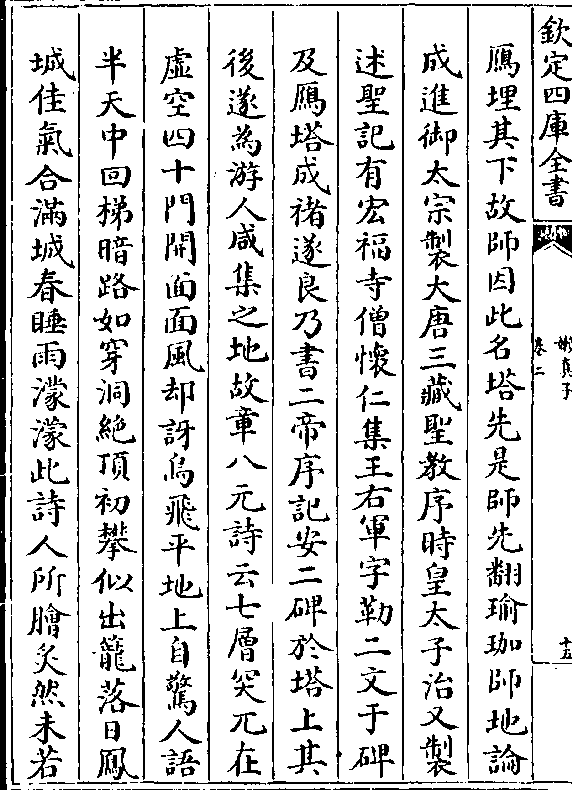 欽定四庫全書
嬾真子
卷二
十五
鴈埋其下故師因此名塔先是師先翻瑜珈師地論
成進御太宗製大唐三藏聖教序時皇太子治又製
述聖記有宏福寺僧懷仁集王右軍字勒二文于碑
及鴈塔成禇遂良乃書二帝序記安二碑於塔上其
後遂為游人咸集之地故章八元詩云七層突兀在
虛空四十門開面面風却訝鳥飛平地上自驚人語
半天中回梯暗路如穿洞絶頂初攀似出籠落日鳳
城佳氣合滿城春睡雨濛濛此詩人所膾炙然未若